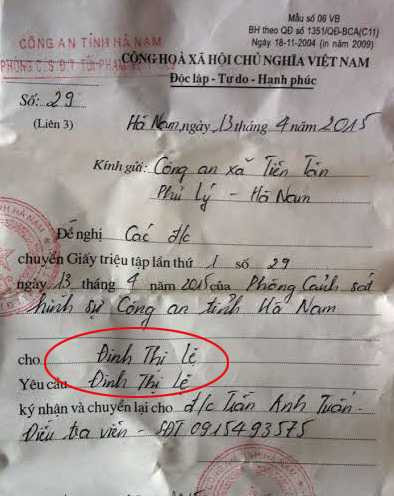 Mẫu số 06 VB
BH theo QĐ số 1351/QĐ-BCA(C11)
Ngày 18-11-2004 (in năm 2009)
CÔNG AN TỈNH HÀ NAM
CỘNG HOÀ XÃ HỘI CHỦ NGHĨA VIỆT NAM
PHÒNG C.S.Đ.T. TỘI PHẠM
Độc lập - Tự do - Hanh phúc
Số: 29
(Liên 3)
Hà Nam, ngày 13 tháng 4 năm 2015
Kính gửi: Công an xã Tiên Tân
Phủ Lý - Hà Nam
Đề nghị Các đ/c
chuyển Giấy triệu tập lần thứ 1 số 29
ngày 13 tháng 4 năm 2015 của Phòng Cảnh sát
hình sự Công an tỉnh Hà Nam
cho Đinh Thị Lệ
Yêu cầu Đinh Thị Lệ
ký nhận và chuyển lại cho đ/c Trần Anh Tuấn -
Điều tra viên - SĐT 0915493575